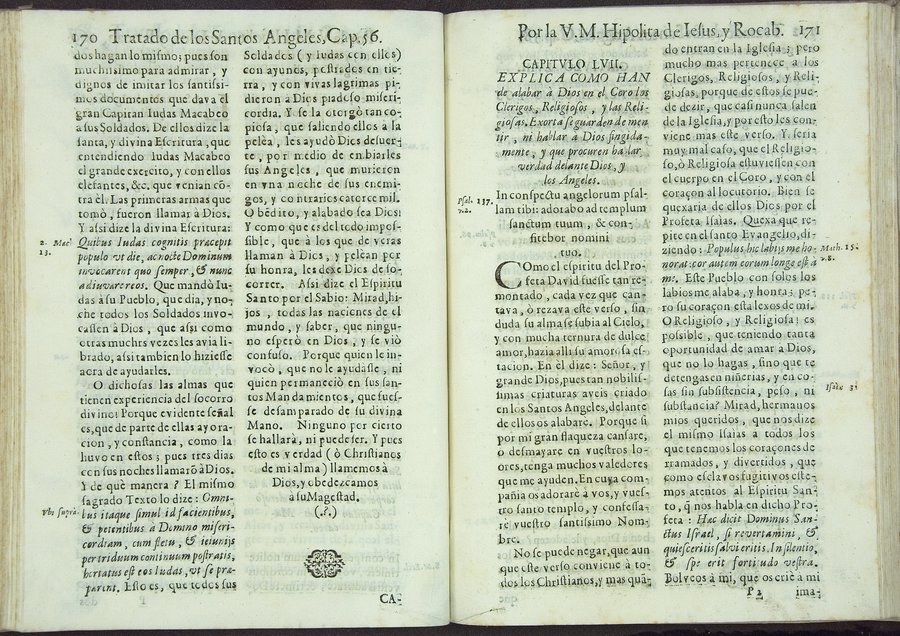 170 Tratado de los Santos Angeles, Cap. 56.
dos hagan lo mismo; pues son
muchissimo para admirar, y
dignos de imitar los santissi-
mos documentos que dava el
gran Capitan Iudas Macabeo
a sus Soldados. De ellos dize la
santa, y divina Escritura, que
entendiendo Iudas Macabeo
el grande exercito, y con ellos
elefantes, &c. que venian cõ-
tra èl. Las primeras armas que
tomò, fueron llamar à Dios.
Y assi dize la divina Escritura:
2. Mac. 13.
Quibus Iudas cognitis præcepit
populo vt die, ac nocte Dominum
invocarent quò semper, & nunc
adiuvaret eos. Que mandò Iu-
das à su Pueblo, que dia, y no-
che todos los Soldados invo-
cassen à Dios, que assi como
otras muchas vezes les avia li-
brado, assi tambien lo hiziesse
acra de ayudarles.
O dichosas las almas que
tienen experiencia del socorro
divino! Porque evidente señal
es, que de parte de ellas ay ora-
cion, y constancia, como la
huvo en estos; pues tres dias
con sus noches llamarõ à Dios.
Y de què manera? El mismo
sagrado Texto lo dize: Omni-
vbi suprà.
bus itaque simul id facientibus,
& petentibus à Domino miseri-
cordiam, cum fletu, & ieiunijs
per triduum continuum postratis,
hortatus est eos Iudas, vt se præ-
parent. Esto es, que todos sus
Soldados (y Iudas con ellos)
con ayunos, postrados en tie-
rra, y con vivas lagrimas pi-
dieron à Dios piadoso miseri-
cordia. Y se la otorgò tan co-
piosa, que saliendo ellos à la
pelèa, les ayudò Dios de suer-
te, por medio de embiarles
sus Angeles, que murieron
en vna noche de sus enemi-
gos, y contrarios catorce mil.
O bēdito, y alabado sea Dios!
Y como que es del todo impos-
sible, que à los que de veras
llaman à Dios, y pelean por
su honra, les dexe Dios de so-
correr. Assi dize el Espiritu
Santo por el Sabio: Mirad, hi-
jos, todas las naciones de el
mundo, y saber, que ningu-
no esperò en Dios, y se viò
confuso. Porque quien le in-
vocò, que no le ayudasse, ni
quien permaneciò en sus san-
tos Mandamientos, que sues-
se desamparado de su divina
Mano. Ninguno por cierto
se hallarà, ni puede ser. Y pues
esto es verdad (ò Christianos
de mi alma) llamemos à
Dios, y obedezcamos
a su Magestad.
(.?.)
CA-
Por la V. M. Hipolita de Iesus, y Rocab. 171
CAPITVLO LVII.
EXPLICA COMO HAN
de alabar à Dios en el Coro los
Clerigos, Religiosos, y las Reli-
giosas. Exorta se guarden de men
tir, ni hablar à Dios fingida-
mente, y que procuren hablar
verdad delante Dios, y
los Angeles.
Psal. 137. v. 2.
In conspectu angelorum psal-
lam tibi: adorabo ad templum
sanctum tuum, & con-
fitebor nomini
tuo.
COmo el espiritu del Pro-
feta David fuesse tan re-
montado, cada vez que can-
tava, ò rezava este verso, sin
duda su alma se subia al Cielo,
y con mucha ternura de dulce
amor, hazia alli su amorosa es-
tacion. En el dize: Señor, y
grande Dios, pues tan nobilis-
simas criaturas aveis criado
en los Santos Angeles, delante
de ellos os alabarè. Porque si
por mi gran flaqueza cansare,
o desmayare en vuestros lo-
ores, tenga muchos valedores
que me ayuden. En cuya com-
pañia os adorarè à vos, y vues-
tro santo templo, y confessa-
rè vuestro santissimo Nom-
bre.
No se puede negar, que aun
que este verso conviene à to-
dos los Christianos, y mas quã-
do entran en la Iglesia; pero
mucho mas pertenece a los
Clerigos, Religiosos, y Reli-
giosas, porque de estos se pue-
de dezir, que casi nunca salen
de la Iglesia, y por esto les con-
viene mas este verso. Y seria
muy mal caso, que el Religio-
so, ò Religiosa estuviessen con
el cuerpo en el Coro, y con el
coraçon al locutorio. Bien se
quexaria de ellos Dios por el
Profeta Isaias. Quexa que re-
pite en el santo Evangelio, di-
ziendo: Populus hic labijs me ho-
Math. 15. v. 8.
norat: cor autem eorum longe est à
me. Este Pueblo con solos los
labios me alaba, y honra; pe-
ro su coraçon esta lexos de mi.
O Religioso, y Religiosa! es
possible, que teniendo tanta
oportunidad de amar a Dios,
que no lo hagas, sino que te
detengas en niñerias, y en co-
Isaiæ 3.
sas sin subsistencia, peso, ni
substancia? Mirad, hermanos
mios queridos, que nos dize
el mismo Isaias a todos los
que tenemos los coraçones de-
rramados, y divertidos, que
como esclavos fugitivos este-
mos atentos al Espiritu San-
to, q̃ nos habla en dicho Pro-
feta: Hæc dicit Dominus San-
ctus Israel, si revertamini, &
quiesceritis salvi eritis. In silentio,
& spe erit fortitudo vestra.
Bolveos à mi, que os criè à mi
P 2 ima-